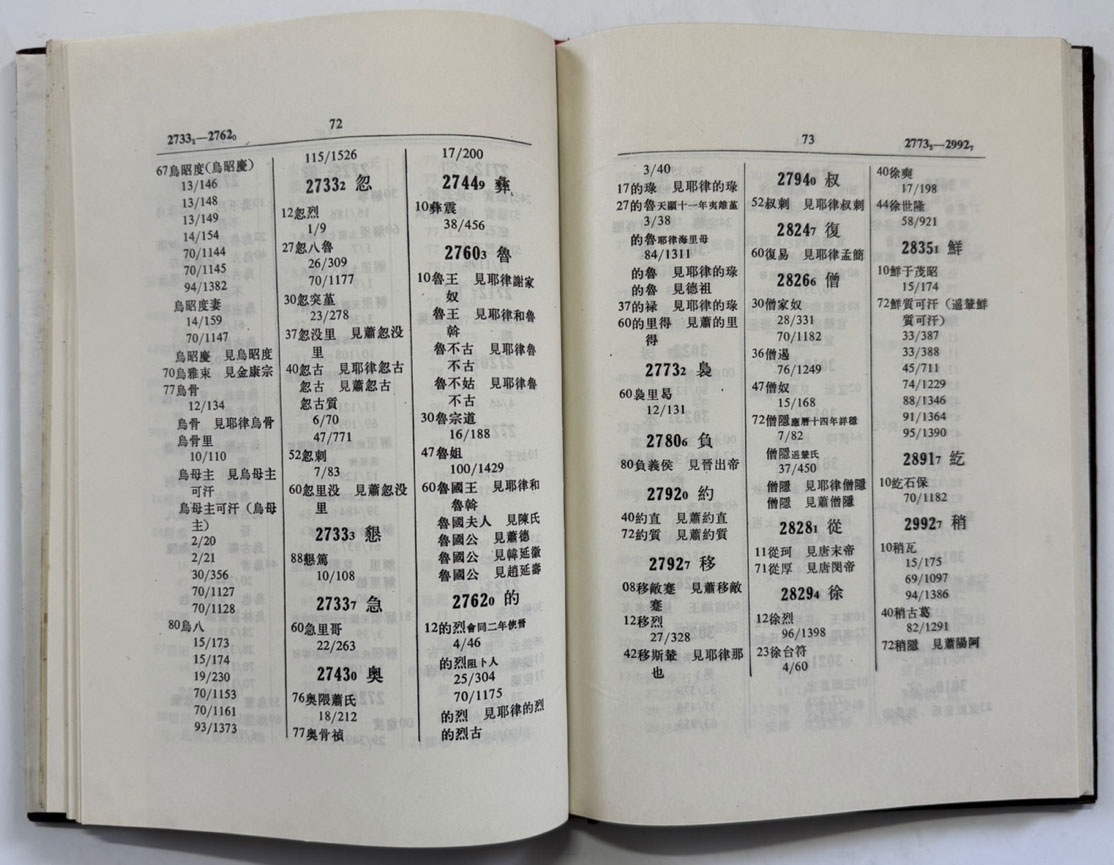 2733₁—2762₀
72
67烏昭度(烏昭慶)
13/146
13/148
13/149
14/154
70/1144
70/1145
94/1382
烏昭度妻
14/159
70/1147
烏昭慶 見烏昭度
70烏雅束 見金康宗
77烏骨
12/134
烏骨 見耶律烏骨
烏骨里
10/110
烏母主 見烏母主
可汗
烏母主可汗(烏母
主)
2/20
2/21
30/356
70/1127
70/1128
80烏八
15/173
15/174
19/230
70/1153
70/1161
93/1373
115/1526
2733₂ 忽
12忽烈
1/9
27忽八魯
26/309
70/1177
30忽突堇
23/278
37忽没里 見蕭忽没
里
40忽古 見耶律忽古
忽古 見蕭忽古
忽古質
6/70
47/771
52忽剌
7/83
60忽里没 見蕭忽没
里
2733₃ 懇
88懇篤
10/108
2733₇ 急
60急里哥
22/263
2743₀ 奥
76奥隈蕭氏
18/212
77奥骨禎
17/200
2744₉ 彝
10彝震
38/456
2760₃ 魯
10魯王 見耶律謝家
奴
魯王 見耶律和魯
斡
魯不古 見耶律魯
不古
魯不姑 見耶律魯
不古
30魯宗道
16/188
47魯姐
100/1429
60魯國王 見耶律和
魯斡
魯國夫人 見陳氏
魯國公 見蕭德
魯國公 見韓延徽
魯國公 見趙延壽
2762₀ 的
12的烈會同二年使晉
4/46
的烈阻卜人
25/304
70/1175
的烈 見耶律的烈
的烈古
73
2773₂—2992₇
3/40
17的琭 見耶律的琭
27的魯天顯十一年夷離堇
3/38
的魯耶律海里母
84/1311
的魯 見耶律的琭
的魯 見德祖
37的祿 見耶律的琭
60的里得 見蕭的里
得
2773₂ 裊
60裊里曷
12/131
2780₆ 負
80負義侯 見晉出帝
2792₀ 約
40約直 見蕭約直
72約質 見蕭約質
2792₇ 移
08移敵蹇 見蕭移敵
蹇
12移烈
27/328
42移斯輦 見耶律那
也
2794₀ 叔
52叔剌 見耶律叔剌
2824₇ 復
60復易 見耶律孟簡
2826₆ 僧
30僧家奴
28/331
70/1182
36僧遏
76/1249
47僧奴
15/168
72僧隱應曆十四年詳穩
7/82
僧隱遥輦氏
37/450
僧隱 見耶律僧隱
僧隱 見蕭僧隱
2828₁ 從
11從珂 見唐末帝
71從厚 見唐閔帝
2829₄ 徐
12徐烈
96/1398
23徐台符
4/60
40徐奭
17/198
44徐世隆
58/921
2835₁ 鮮
10鮮于茂昭
15/174
72鮮質可汗(遥輦鮮
質可汗)
33/387
33/388
45/711
74/1229
88/1346
91/1364
95/1390
2891₇ 紇
10紇石保
70/1182
2992₇ 稍
10稍瓦
15/175
69/1097
94/1386
40稍古葛
82/1291
72稍隱 見蕭陽阿